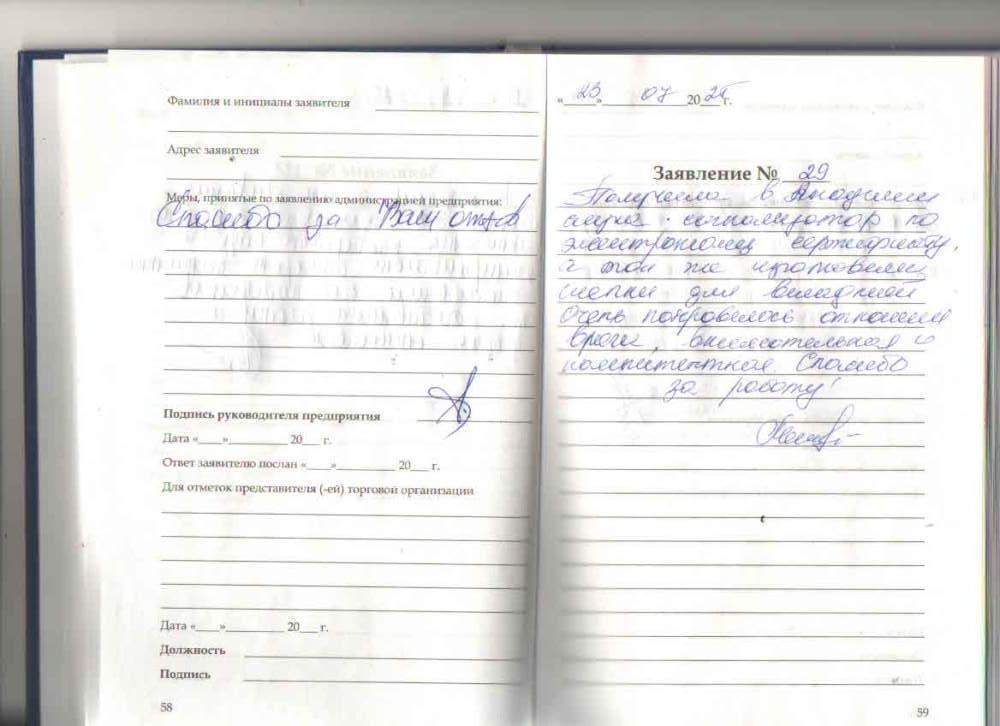 Фамилия и инициалы заявителя
Адрес заявителя
Меры, принятые по заявлению администрацией предприятия:
Спасибо за Ваш отзыв
Подпись руководителя предприятия
Дата «___»__________ 20___ г.
Ответ заявителю послан «___»__________ 20___ г.
Для отметок представителя (-ей) торговой организации
Дата «___»__________ 20___ г.
Должность
Подпись
58
«23» 07 2025г.
Заявление № 29
Получила в Академии
слуха сигнализатор по
электронному сертификату,
а так же изготовили
слепки для вкладышей
Очень понравилось отношение
врача, внимательная и
компитентная Спасибо
за работу!
59